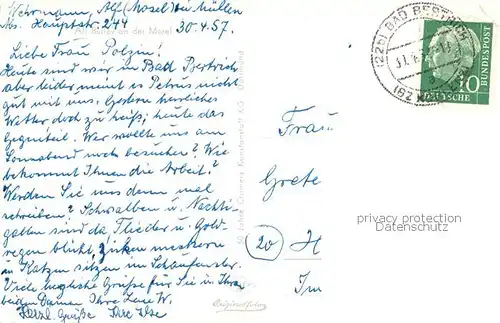 Wehrmann, Alf (Mosel) bei Müllen
Hauptstr. 244 30.4.57.
Alf-Bullay an der Mosel
Liebe Frau Polzin!
Heute sind wir in Bad Bertrich
aber leider meint es Petrus nicht
gut mit uns. Gestern herrliches
Wetter doch zu heiß; heute das
Gegenteil. Wer wollte uns am
Sonnabend noch besuchen? Wie
bekommt Ihnen die Arbeit?
Werden Sie uns denn mal
schreiben? Schwalben u. Nachti-
gallen sind da Flieder u. Gold-
regen blüht, Zicken meckern
u. Katzen sitzen im Schaufenster.
Viele herzliche Grüße für Sie u. Ihre
beiden Damen Ihre Lene W.
Herzl. Grüße Ihre Ilse
Frau
Grete
20 H
Im
(22b) BAD BERTRICH
DEUTSCHE BUNDESPOST
10
privacy protection
Datenschutz